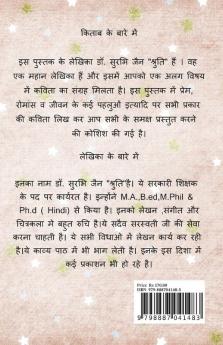 किताब के बारे में
इस पुस्तक के लेखिका डॉ. सुरभि जैन "श्रुति" हैं । वह
एक महान लेखिका हैं और इसमें आपको एक अलग विषय
में कविता का संग्रह मिलता है। इस पुस्तक में प्रेम,
रोमांस व जीवन के कई पहलुओं इत्यादि पर सभी प्रकार
की कविता लिख कर आप सभी के समक्ष प्रस्तुत करने
की कोशिश की गई है।
लेखिका के बारे में
इनका नाम डॉ. सुरभि जैन "श्रुति"है। ये सरकारी शिक्षक
के पद पर कार्यरत है। इन्होंने M.A.,B.ed,M.Phil &
Ph.d ( Hindi) से किया है। इनको लेखन ,संगीत और
चित्रकला मे बहुत रुचि है।ये सदैव सरस्वती जी की सेवा
करना चाहती है। ये सभी विधाओ में लेखन कार्य कर रही
है।ये काव्य पाठ में भी भाग लेती है। इनके इस दिशा में
कई प्रकाशन भी हो रहे है।
9 798887 041483